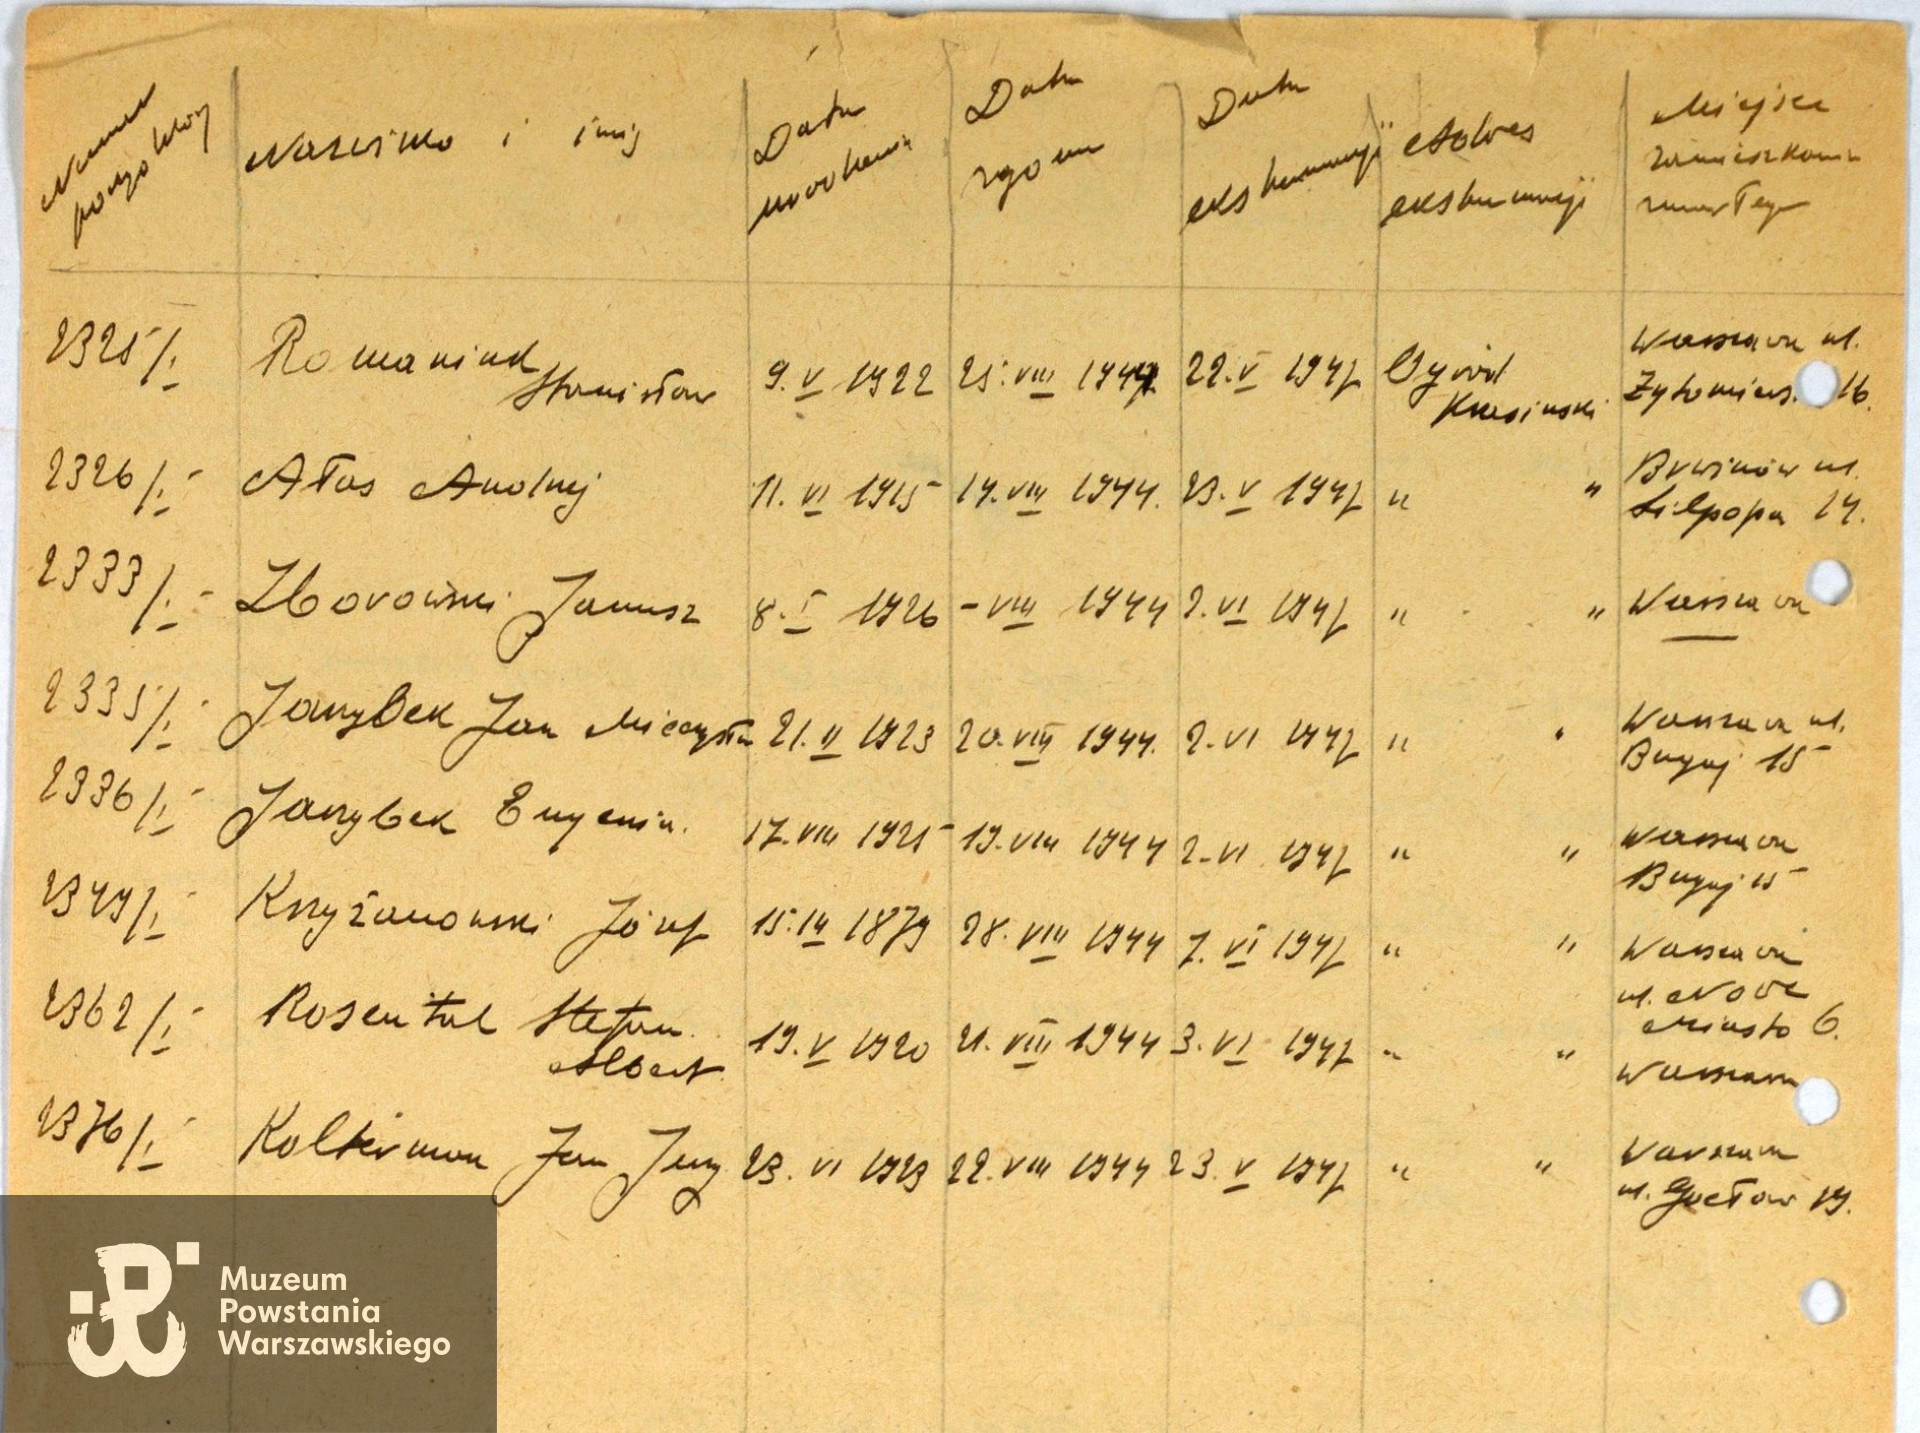 Numer porządkowy Nazwisko i imię Data urodzenia Data zgonu Data ekshumacji Adres ekshumacji Miejsce zamieszkania zmarłego
2325/I Romaniuk Stanisław 9.V 1922 25.VIII 1944 22.V 1947 Ogród Krasiński Warszawa ul. Żytomiers. 16.
2326/I - Ałas Andrzej 11.VI 1915 14.VIII 1944. 23.V 1947 " " Brwinów ul. Lilpopa 14.
2333/I - Zborowski Janusz 8.I 1926 - VIII 1944 2.VI 1947 " " Warszawa
2335/I - Jarzybek Jan Mieczysław 21.II 1923 20.VIII 1944. 2.VI 1947 " " Warszawa ul. Bugaj 15
2336/I - Jarzybek Eugenia. 17.VIII 1925 19.VIII 1944 2.VI 1947 " " Warszawa Bugaj 15
2349/I - Krzyżanowski Józef 15.III 1879 28.VIII 1944 7.VI 1947 " " Warszawa ul. Nowe Miasto 6.
2362/I - Rosental Stefan Albert 19.V 1920 21.VIII 1944 3.VI 1947 " " Warszawa
2376/I - Kolkirman Jan Jerzy 23.VI 1923 22.VIII 1944 23.V 1947 " " Warszawa ul. 19.
Muzeum
Powstania
Warszawskiego